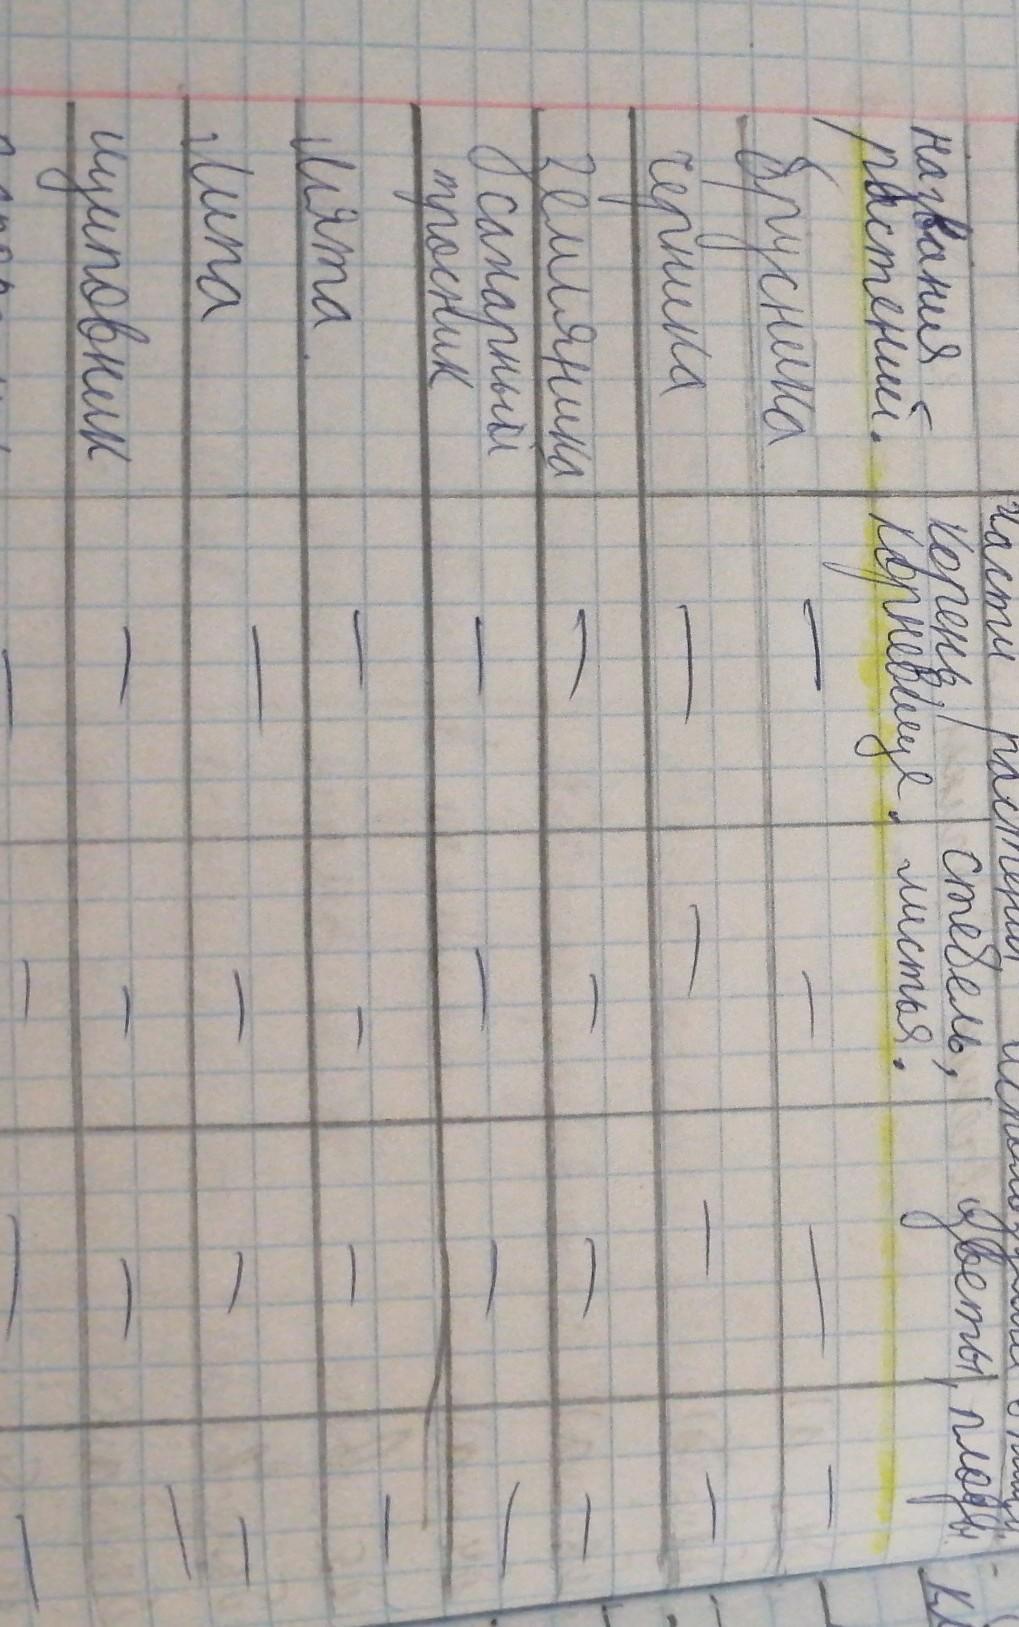 части растений используемые в пищу.
названия растений.
корень, корневище.
стебель, листья.
цветы, плоды
брусника
черника
земляника
сахарный тросник
мята.
липа
шиповник